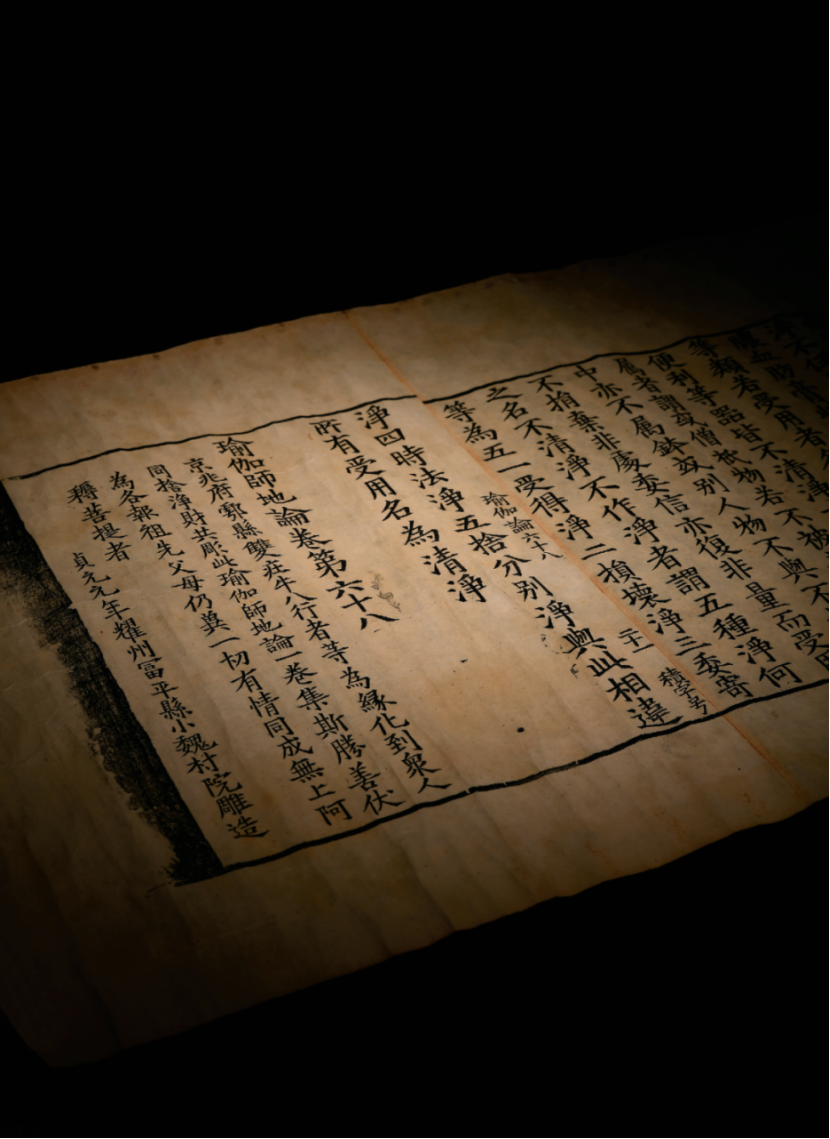 等類若受用者
便利等器皆不清淨
屬者謂或僧祇物若不被
中亦不屬鉢或別人物不與不
不捐棄非處委信亦復非量而受
之名不清淨不作淨者謂五種淨何
等為五一受得淨二損壞淨三委寄
瑜伽論六十八 二十一 積字号
淨四時法淨五捨分別淨與此相違
所有受用名為清淨
瑜伽師地論卷第六十八
京兆府鄠縣雙莊牛八行者等為緣化到衆人
同捨淨財共彫此瑜伽師地論一卷集斯勝善伏
為各報祖先父母仍冀一切有情同成無上阿
耨菩提者 貞元元年耀州富平縣小魏村院雕造